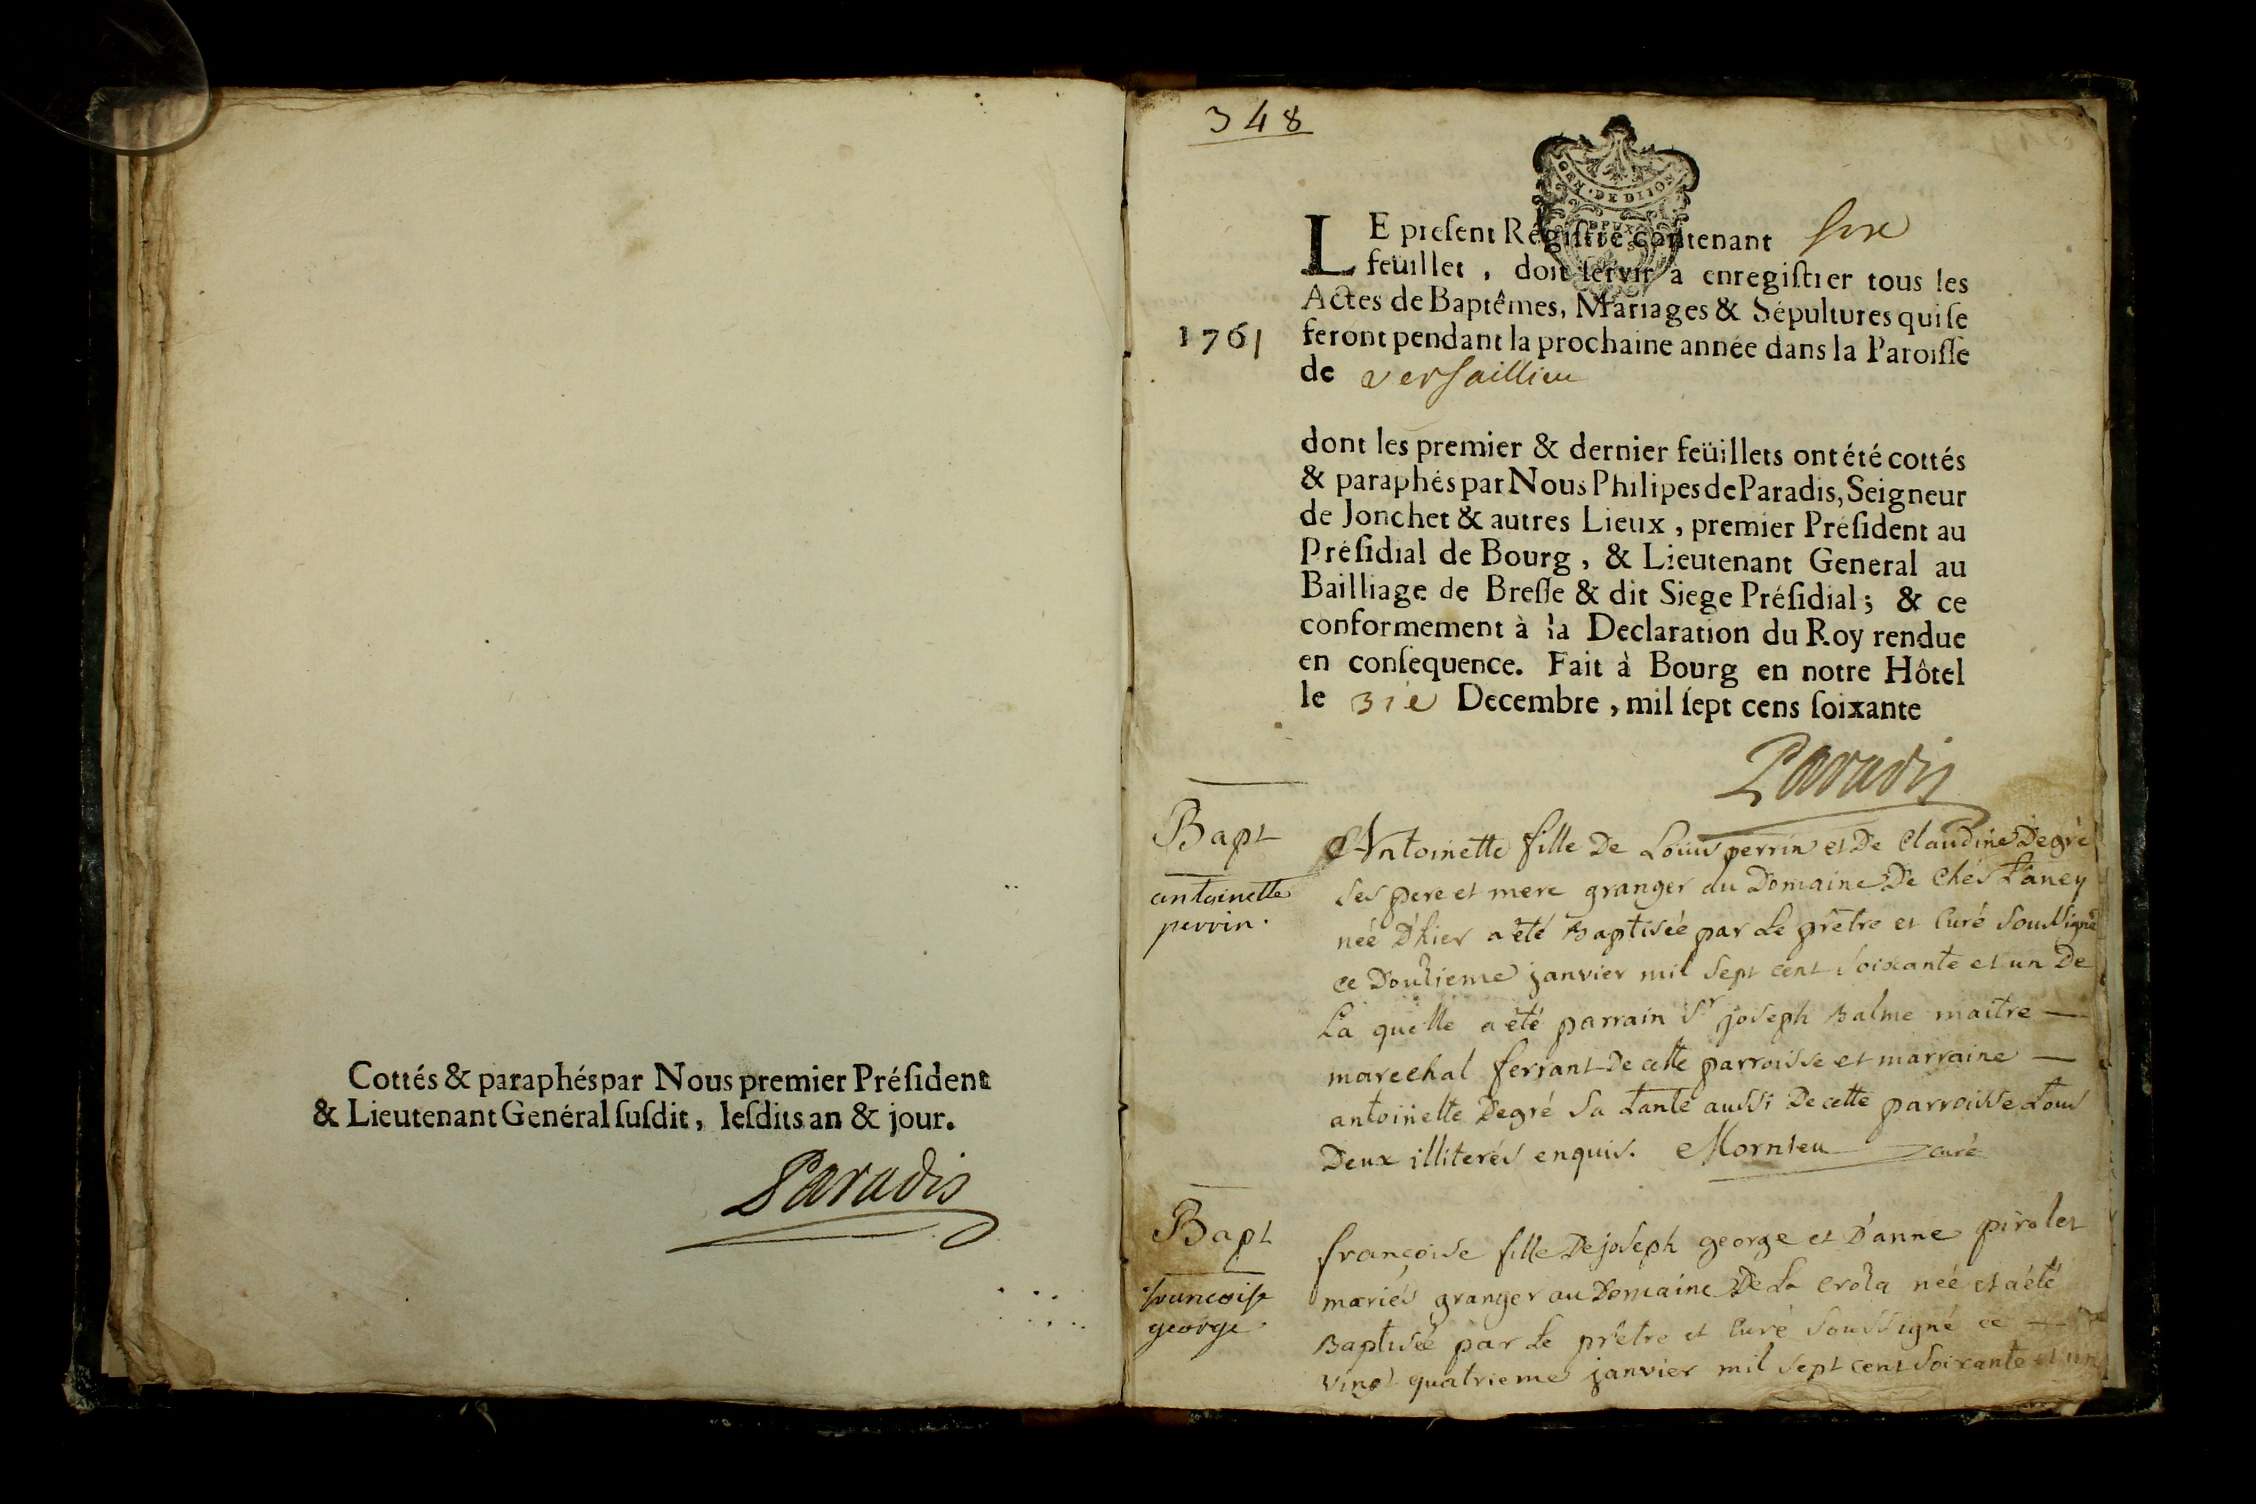 Cottés & paraphés par Nous premier Préſident
& Lieutenant Genéral ſuſdit, leſdits an & jour.
Paradis
348
GEN. DE DIJON
LE preſent Régiſtre contenant six
feüillet, doit ſervir à enregiſtrer tous les
Actes de Baptêmes, Mariages & Sépultures qui ſe
1761
feront pendant la prochaine année dans la Paroiſſe
de versaillieu
dont les premier & dernier feüillets ont été cottés
& paraphés par Nous Philipes de Paradis, Seigneur
de Jonchet & autres Lieux, premier Préſident au
Préſidial de Bourg, & Lieutenant General au
Bailliage de Breſſe & dit Siege Préſidial; & ce
conformement à la Declaration du Roy rendue
en conſequence. Fait à Bourg en notre Hôtel
le 31e Decembre, mil ſept cens ſoixante
Paradis
Bapt
antoinette
perrin.
Antoinette fille De Louis perrin et De Claudine Degré
ses pere et mere granger du Domaine De Chés Taney
née D'hier a été Baptisée par Le prêtre et Curé Soussigné
ce Douzieme janvier mil sept cent soixante et un De
La quelle a été parrain Sr joseph Balme maitre —
marechal ferrant De cette parroisse et marraine —
antoinette Degré sa tante aussi De cette parroisse tous
Deux illiterés enquis. Mornieu curé
Bapt
francoise
george.
françoise fille De joseph george et D'anne pirolet
mariés granger au Domaine De La Croza née et a été
Baptisée par Le prêtre et Curé Soussigné ce —
vingt quatrieme janvier mil sept cent soixante et un